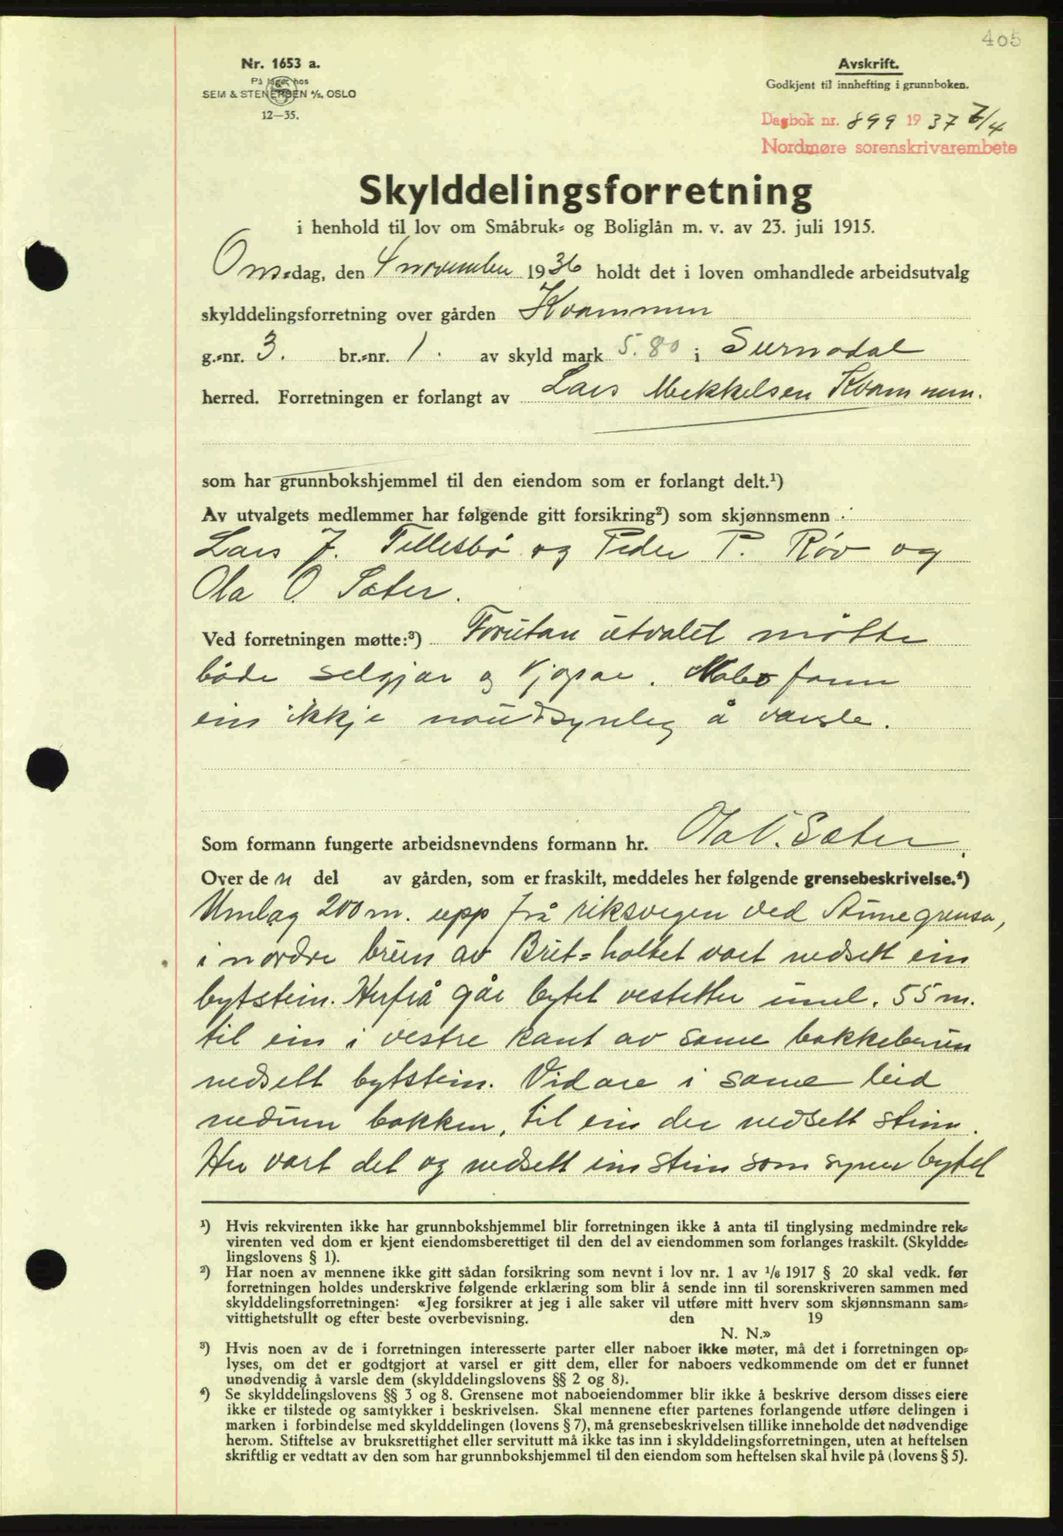 405
Nr. 1653 a.
På lager hos
SEM & STENERSEN A/S, OSLO
12—35.
Avskrift.
Godkjent til innhefting i grunnboken.
Dagbok nr. 899 1937 7/4
Nordmøre sorenskrivarembete
Skylddelingsforretning
i henhold til lov om Småbruk- og Boliglån m. v. av 23. juli 1915.
Onsdag, den 4 november 1936 holdt det i loven omhandlede arbeidsutvalg
skylddelingsforretning over gården Kvammen
g.-nr. 3. br.-nr. 1. av skyld mark 5.80 i Surnadal
herred. Forretningen er forlangt av Lars Mikkelsen Kvammen.
som har grunnbokshjemmel til den eiendom som er forlangt delt.¹)
Av utvalgets medlemmer har følgende gitt forsikring²) som skjønnsmenn :
Lars J. Tellesbø og Peder P. Røv og
Ola O. Sæter.
Ved forretningen møtte:³) Forutan utvalet møtte
både seljar og kjøpar. Nabo fann
ein ikkje naudsynleg å varsle.
Som formann fungerte arbeidsnevndens formann hr. Ola O. Sæter.
Over den del av gården, som er fraskilt, meddeles her følgende grensebeskrivelse.⁴)
Umlag 200 m. upp frå riksvegen ved Stimegrensa,
i nordre brun av Brit=holtet vart nedsett ein
bytstein. Herfrå går bytet vestetter uml. 55 m.
til ein i vestre kant av same bakkebrun
nedsett bytstein. Vidare i same leid
nedum bakken, til ein der nedsett stein.
Her vart det og nedsett ein stein som syner bytet
¹) Hvis rekvirenten ikke har grunnbokshjemmel blir forretningen ikke å anta til tinglysing medmindre rek-
virenten ved dom er kjent eiendomsberettiget til den del av eiendommen som forlanges fraskilt. (Skyldde-
lingslovens § 1).
²) Har noen av mennene ikke gitt sådan forsikring som nevnt i lov nr. 1 av 1/6 1917 § 20 skal vedk. før
forretningen holdes underskrive følgende erklæring som blir å sende inn til sorenskriveren sammen med
skylddelingsforretningen: «Jeg forsikrer at jeg i alle saker vil utføre mitt hverv som skjønnsmann sam-
vittighetsfullt og efter beste overbevisning. den 19
N. N.»
³) Hvis noen av de i forretningen interesserte parter eller naboer ikke møter, må det i forretningen op-
lyses, om det er godtgjort at varsel er gitt dem, eller for naboers vedkommende om det er funnet
unødvendig å varsle dem (skylddelingslovens §§ 2 og 8).
⁴) Se skylddelingslovens §§ 3 og 8. Grensene mot naboeiendommer blir ikke å beskrive dersom disses eiere
ikke er tilstede og samtykker i beskrivelsen. Skal mennene efter partenes forlangende utføre delingen i
marken i forbindelse med skylddelingen (lovens § 7), må grensebeskrivelsen tillike inneholde det nødvendige
herom. Stiftelse av bruksrettighet eller servitutt må ikke tas inn i skylddelingsforretningen, uten at heftelsen
skriftlig er vedtatt av den som har grunnbokshjemmel til den eiendom som heftelsen skal hvile på (lovens § 5).